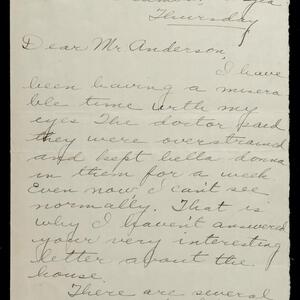 Thursday
Dear Mr Anderson,
I have
been having a misera
ble time with my
eyes The doctor said
they were overstrained
and kept bella donna
in them for a week
Even now I can't see
normally. That is
why I haven't answered
your very interesting
letter about the
house.
There are several